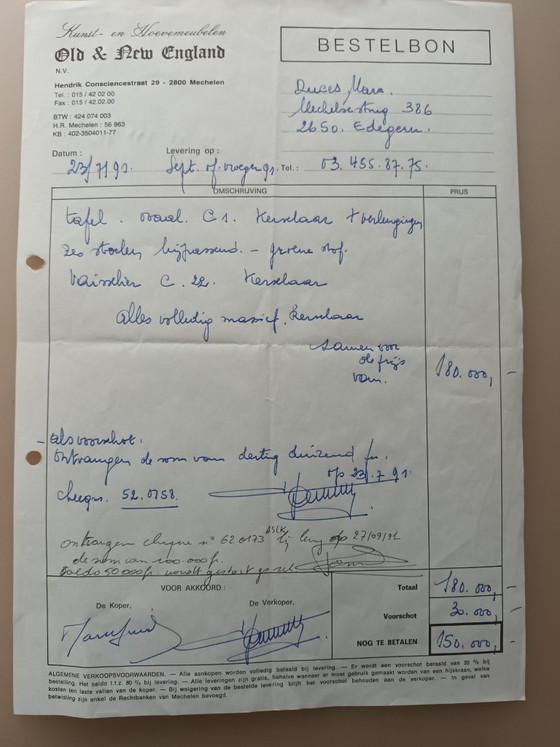 Kunst- en Hoevemeubelen
Old & New England
N.V.
Hendrik Consciencestraat 29 - 2800 Mechelen
Tel. : 015 / 42 02 00
Fax : 015 / 42.02.00
BTW : 424 074 003
H.R. Mechelen : 56 963
KB : 402-3504011-77
BESTELBON
Mara.
386
2650. Edegem.
Datum : 23/7/91.
Levering op : Sept. of vroeger 91.
Tel.: 03. 455.87.75.
OMSCHRIJVING PRIJS
tafel. ovaal C1. Kerselaar + verlengingen
zes stoelen bijpassend. - groene stof.
Vaisselier C. 22. Kerselaar
alles volledig massief. Kerselaar
samen voor
de prijs
van. 180.000,-
- als voorschot.
ontvangen de som van dertig duizend fr.
op 23.7.91.
cheque. 52.0758.
ontvangen cheque n° 620173 ASLK bij lev op 27/09/91
de som van 100.000 fr.
saldo 50.000 fr. wordt gestort
VOOR AKKOORD :
De Koper, De Verkoper,
Totaal 180.000,-
Voorschot 30.000,-
NOG TE BETALEN 150.000,-
ALGEMENE VERKOOPSVOORWAARDEN. — Alle aankopen worden volledig betaald bij levering. — Er wordt een voorschot betaald van 20 % bij
bestelling. Het saldo t.t.z. 80 % bij levering. — Alle leveringen zijn gratis, behalve wanneer er moet gebruik gemaakt worden van een hijskraan, welke
kosten ten laste vallen van de koper. — Bij weigering van de bestelde levering blijft het voorschot behouden aan de verkoper. — In geval van
betwisting zijn enkel de Rechtbanken van Mechelen bevoegd.